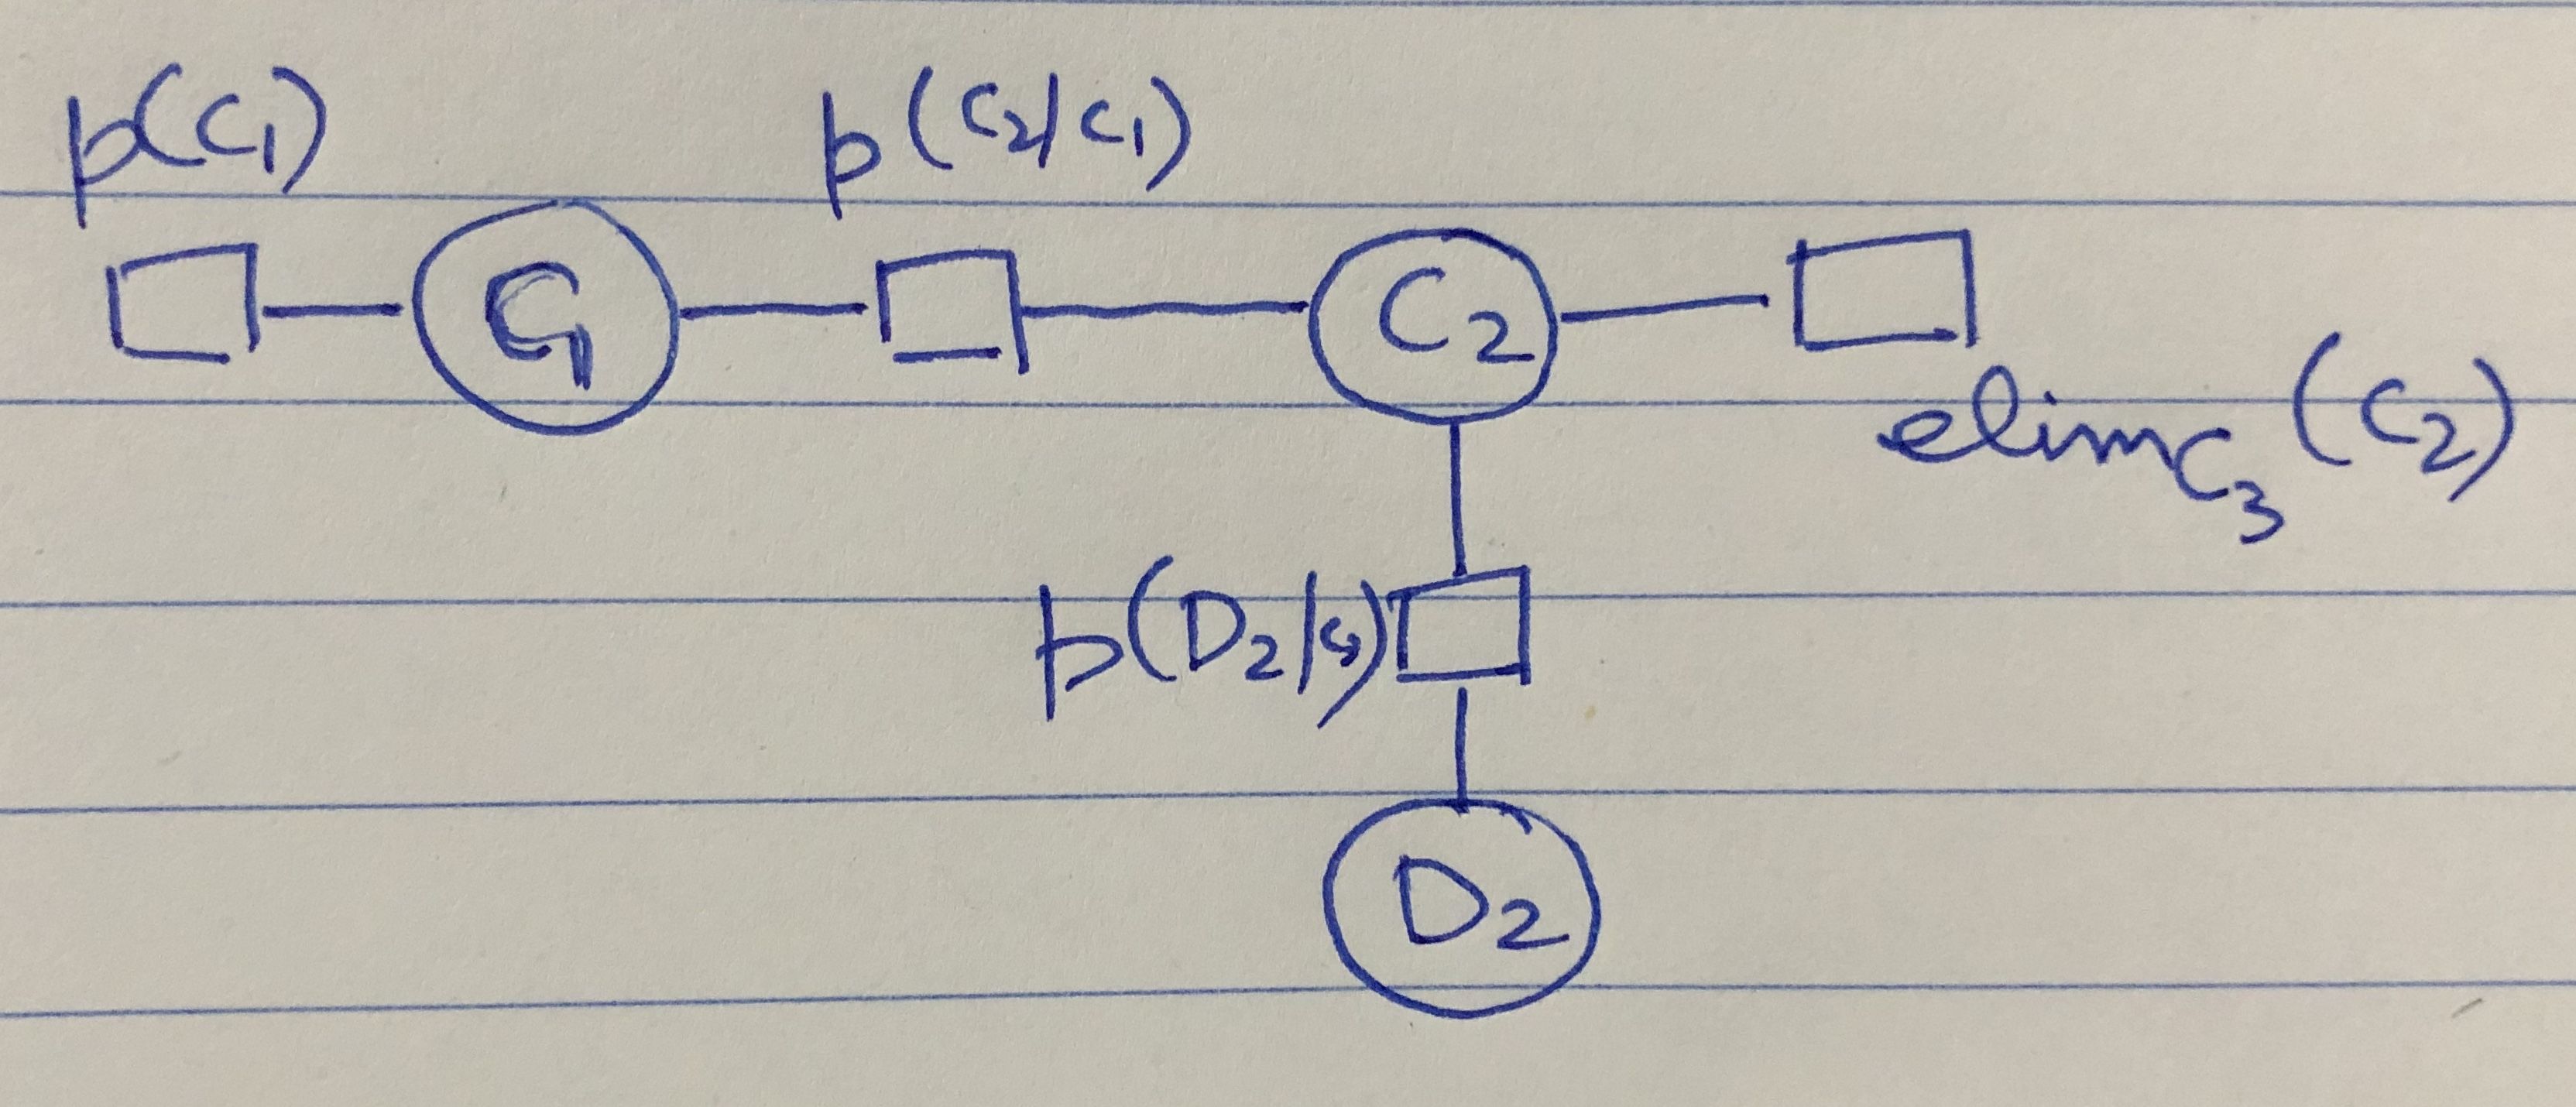 p(C1) p(C2|C1)
C1 C2
elimC3(C2)
p(D2|C2)
D2